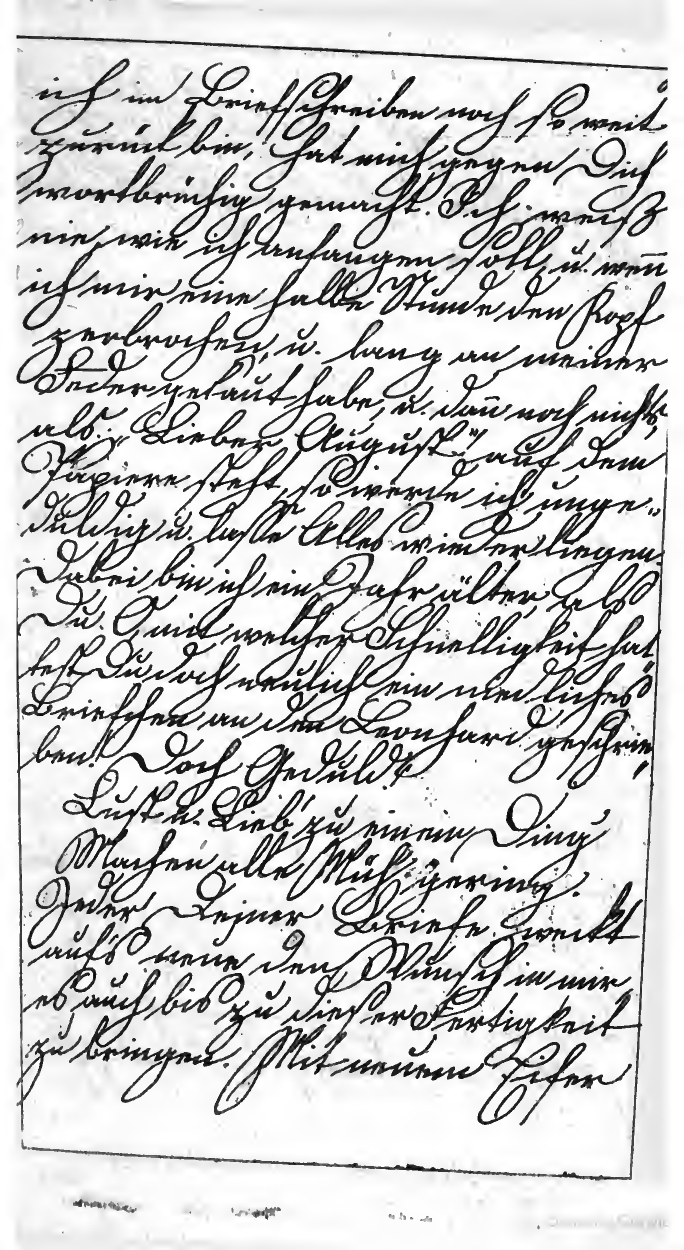 ich im Briefschreiben noch so weit
zurück bin, hat mich gegen Dich
wortbrüchig gemacht. Ich weiß
nie, wie ich anfangen soll, u. weñ
ich mir eine halbe Stunde den Kopf
zerbrochen, u. lang an meiner
Feder gekaut habe, u. dañ noch nichts,
als: „Lieber August“ auf dem
Papiere steht, so werde ich unge-
duldig u. lasse Alles wieder liegen.
Dabei bin ich ein Jahr älter als
Du. O, mit welcher Schnelligkeit hat-
test Du doch neulich ein niedliches
Briefchen an den Leonhard geschrie-
ben! Doch Geduld!
Lust u. Lieb' zu einem Ding
Machen alle Müh' gering.
Jeder Deiner Briefe weckt
auf's neue den Wunsch in mir,
es auch bis zu dieser Fertigkeit
zu bringen. Mit neuem Eifer